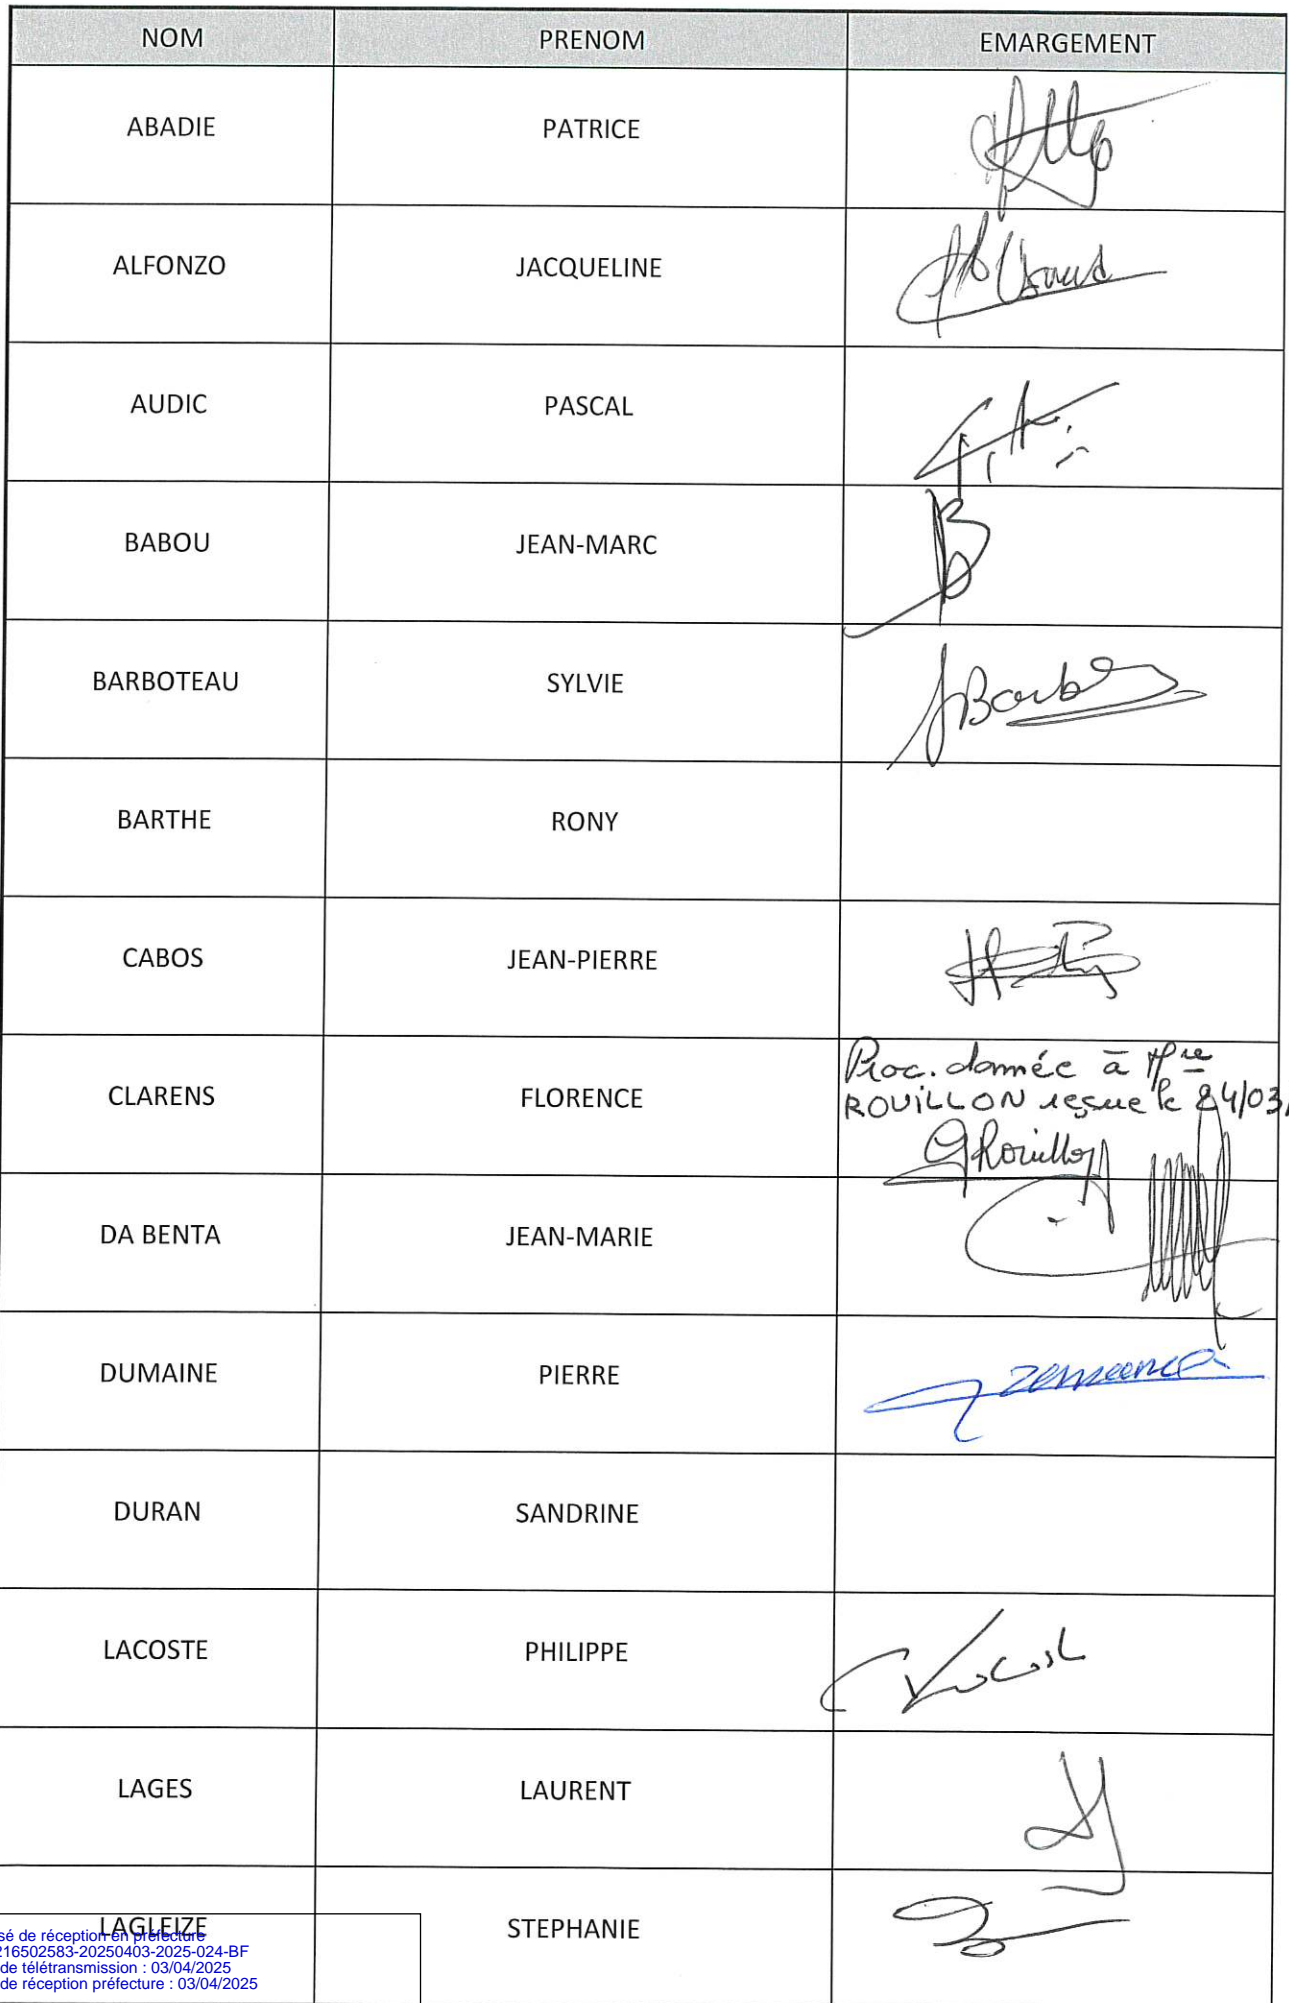 NOM PRENOM EMARGEMENT
ABADIE PATRICE
ALFONZO JACQUELINE
AUDIC PASCAL
BABOU JEAN-MARC
BARBOTEAU SYLVIE
BARTHE RONY
CABOS JEAN-PIERRE
CLARENS FLORENCE Proc. donnée à Mme
ROUILLON reçue le 24/03
GRouillon
DA BENTA JEAN-MARIE
DUMAINE PIERRE
DURAN SANDRINE
LACOSTE PHILIPPE
LAGES LAURENT
LAGLEIZE STEPHANIE
sé de réception en préfecture
216502583-20250403-2025-024-BF
de télétransmission : 03/04/2025
de réception préfecture : 03/04/2025